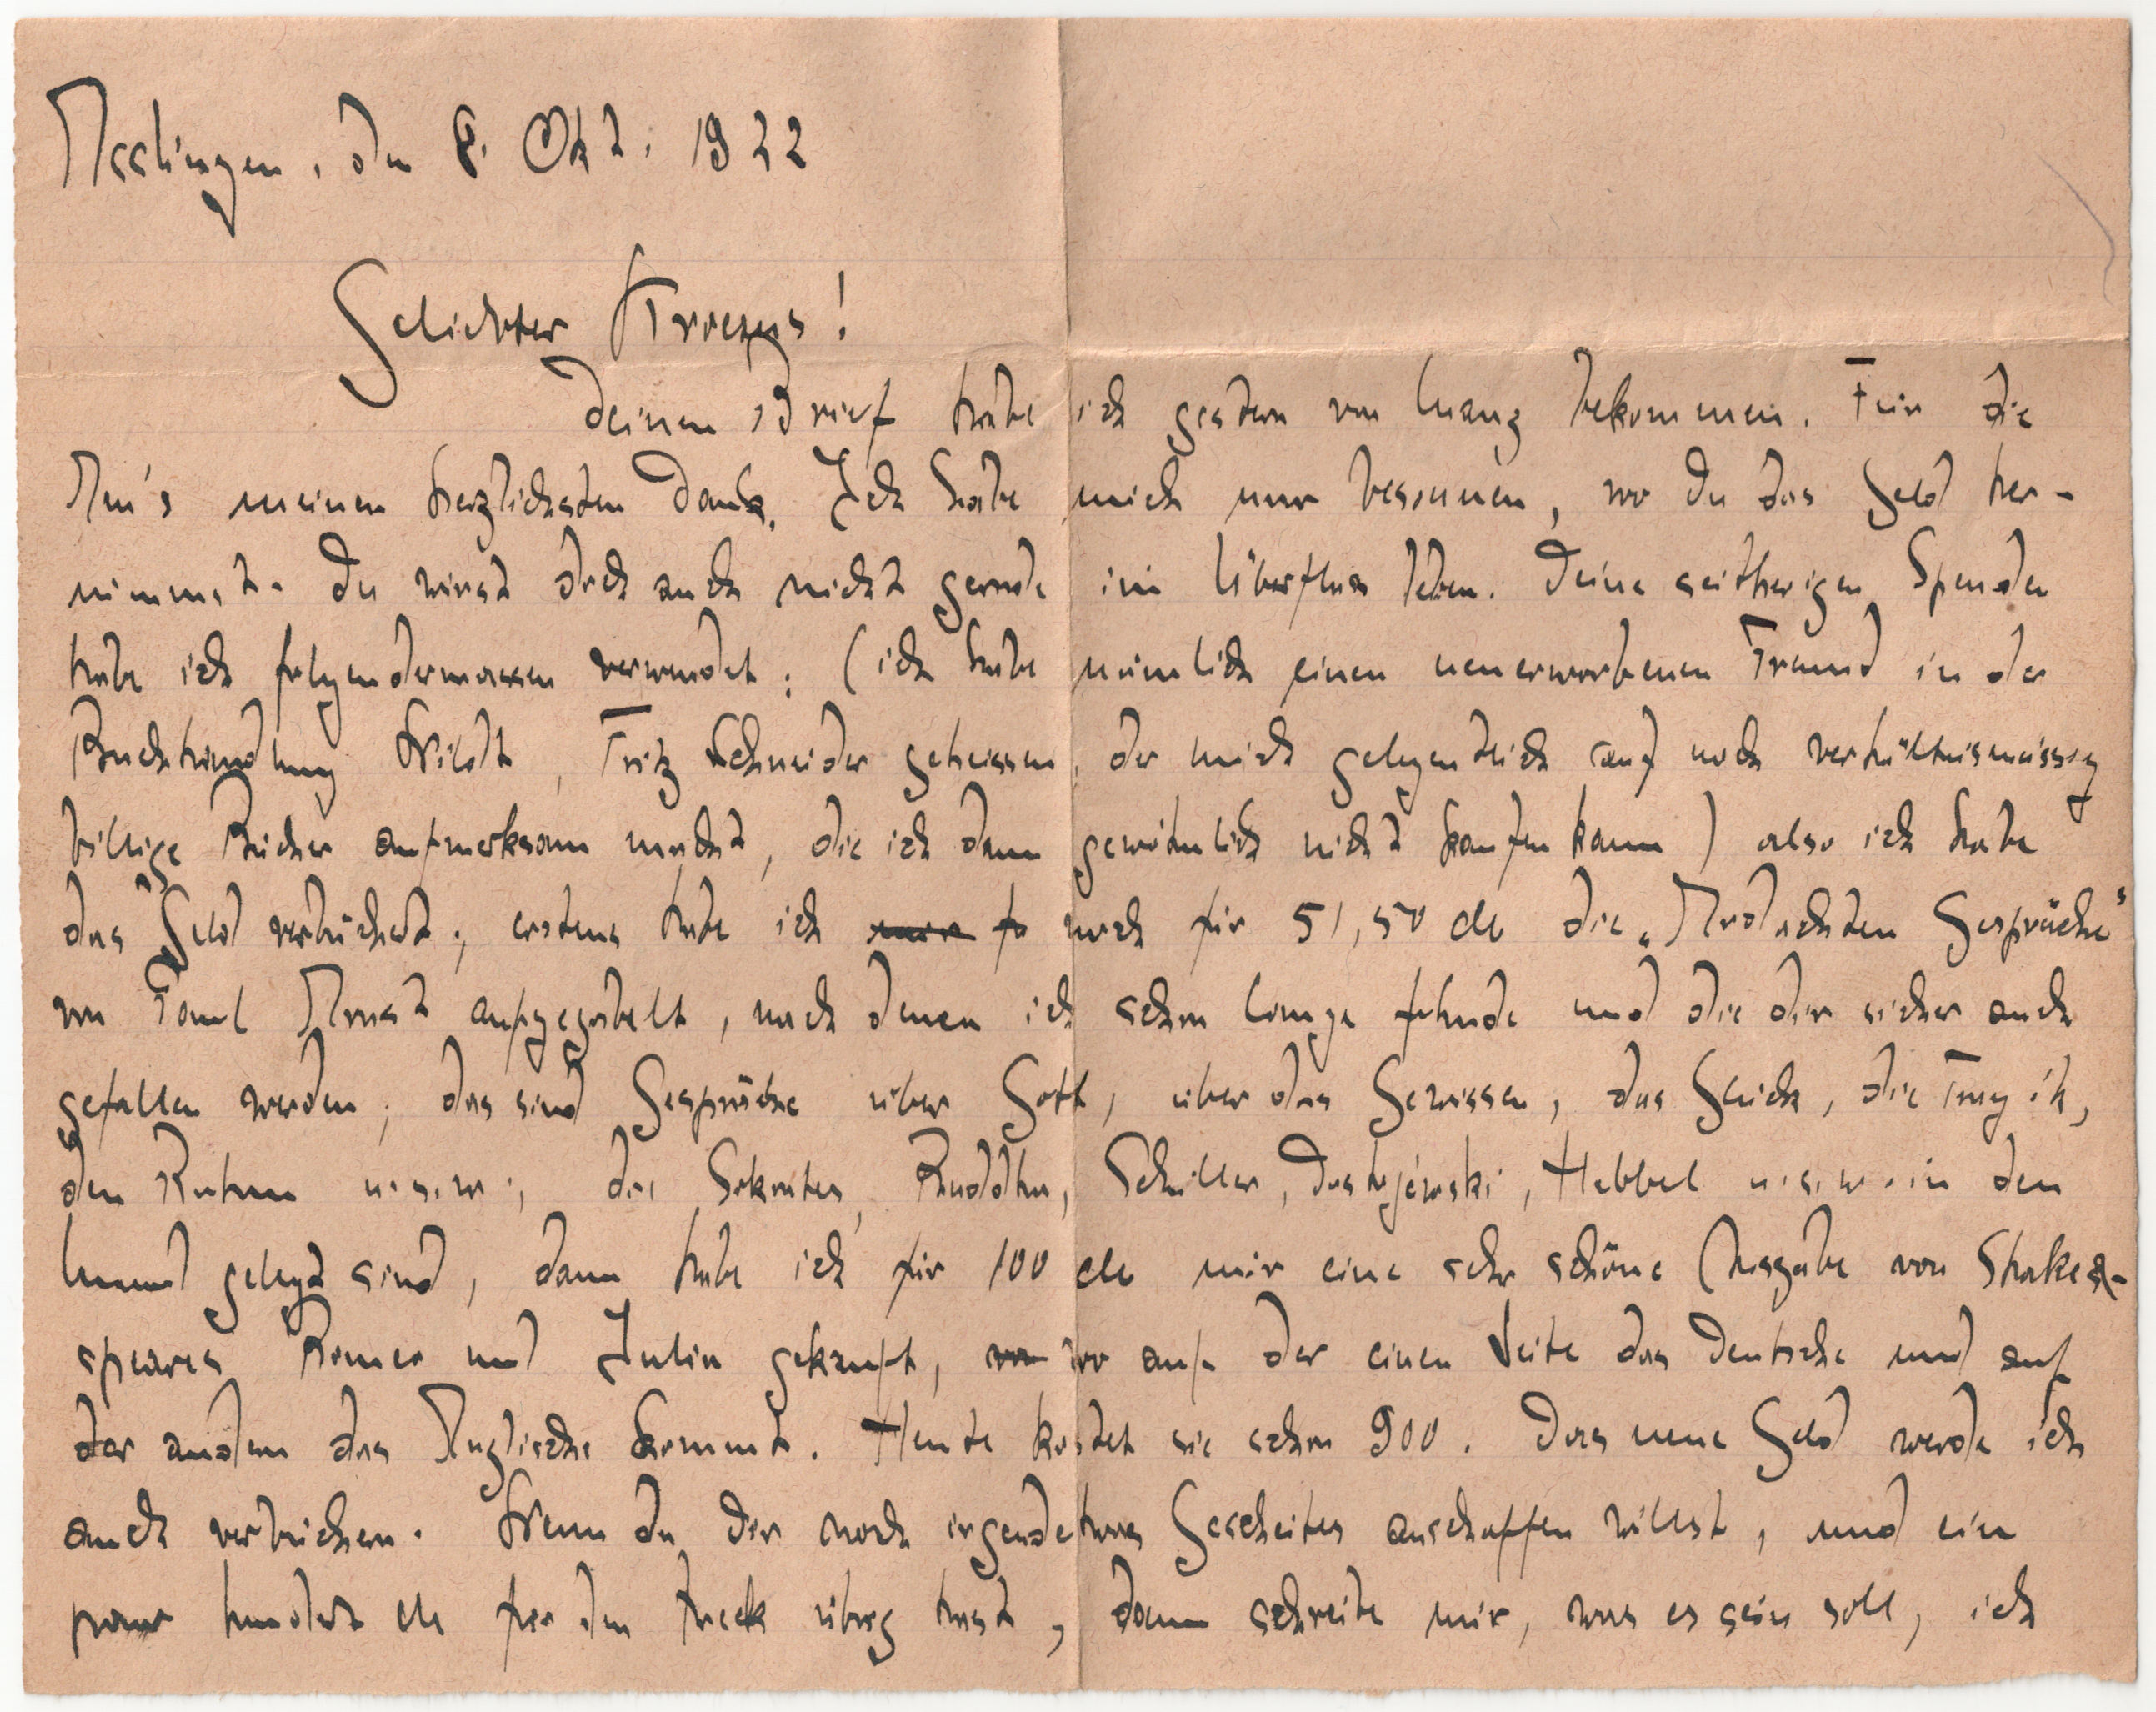 Esslingen, den 8. Okt. 1922
Geliebter Kroesus!
Deinen Brief habe ich gestern von bekommen. Für die
Em's meinen herzlichsten Dank. Ich habe mich nur besonnen, wo Du das Geld her-
nimmst. Du wirst doch auch nicht gerade im Überfluss leben. Deine seitherigen Spenden
habe ich folgendermassen verwendet: (ich habe nämlich einen neuerworbenen Freund in der
Buchhandlung Wildt, Fritz Schneider geheissen, der mich gelegentlich auf noch verhältnismässig
billige Bücher aufmerksam macht, die ich dann gewöhnlich nicht kaufen kann) also ich habe
das Geld verbüchert; erstens habe ich noch für 51,50 M die „Erdachten Gespräche"
von Paul Ernst aufgegabelt, nach denen ich schon lange fahnde und die dir sicher auch
gefallen werden; das sind Gespräche über Gott, über das Gewissen, das Glück, die Tragik,
den Ruhm u.s.w., die Sokrates, Buddha, Schiller, Dostojewski, Hebbel u.s.w. in den
Mund gelegt sind, dann habe ich für 100 M mir eine sehr schöne Ausgabe von Shakes-
speares Romeo und Julia gekauft, wo auf der einen Seite das Deutsche und auf
der andern das Englische kommt. Heute kostet sie schon 900. Das neue Geld werde ich
auch verbüchern. Wenn du dir noch irgendetwas Gescheites anschaffen willst, und ein
paar hundert M für den Zweck übrig hast, dann schreibe mir, was es sein soll, ich